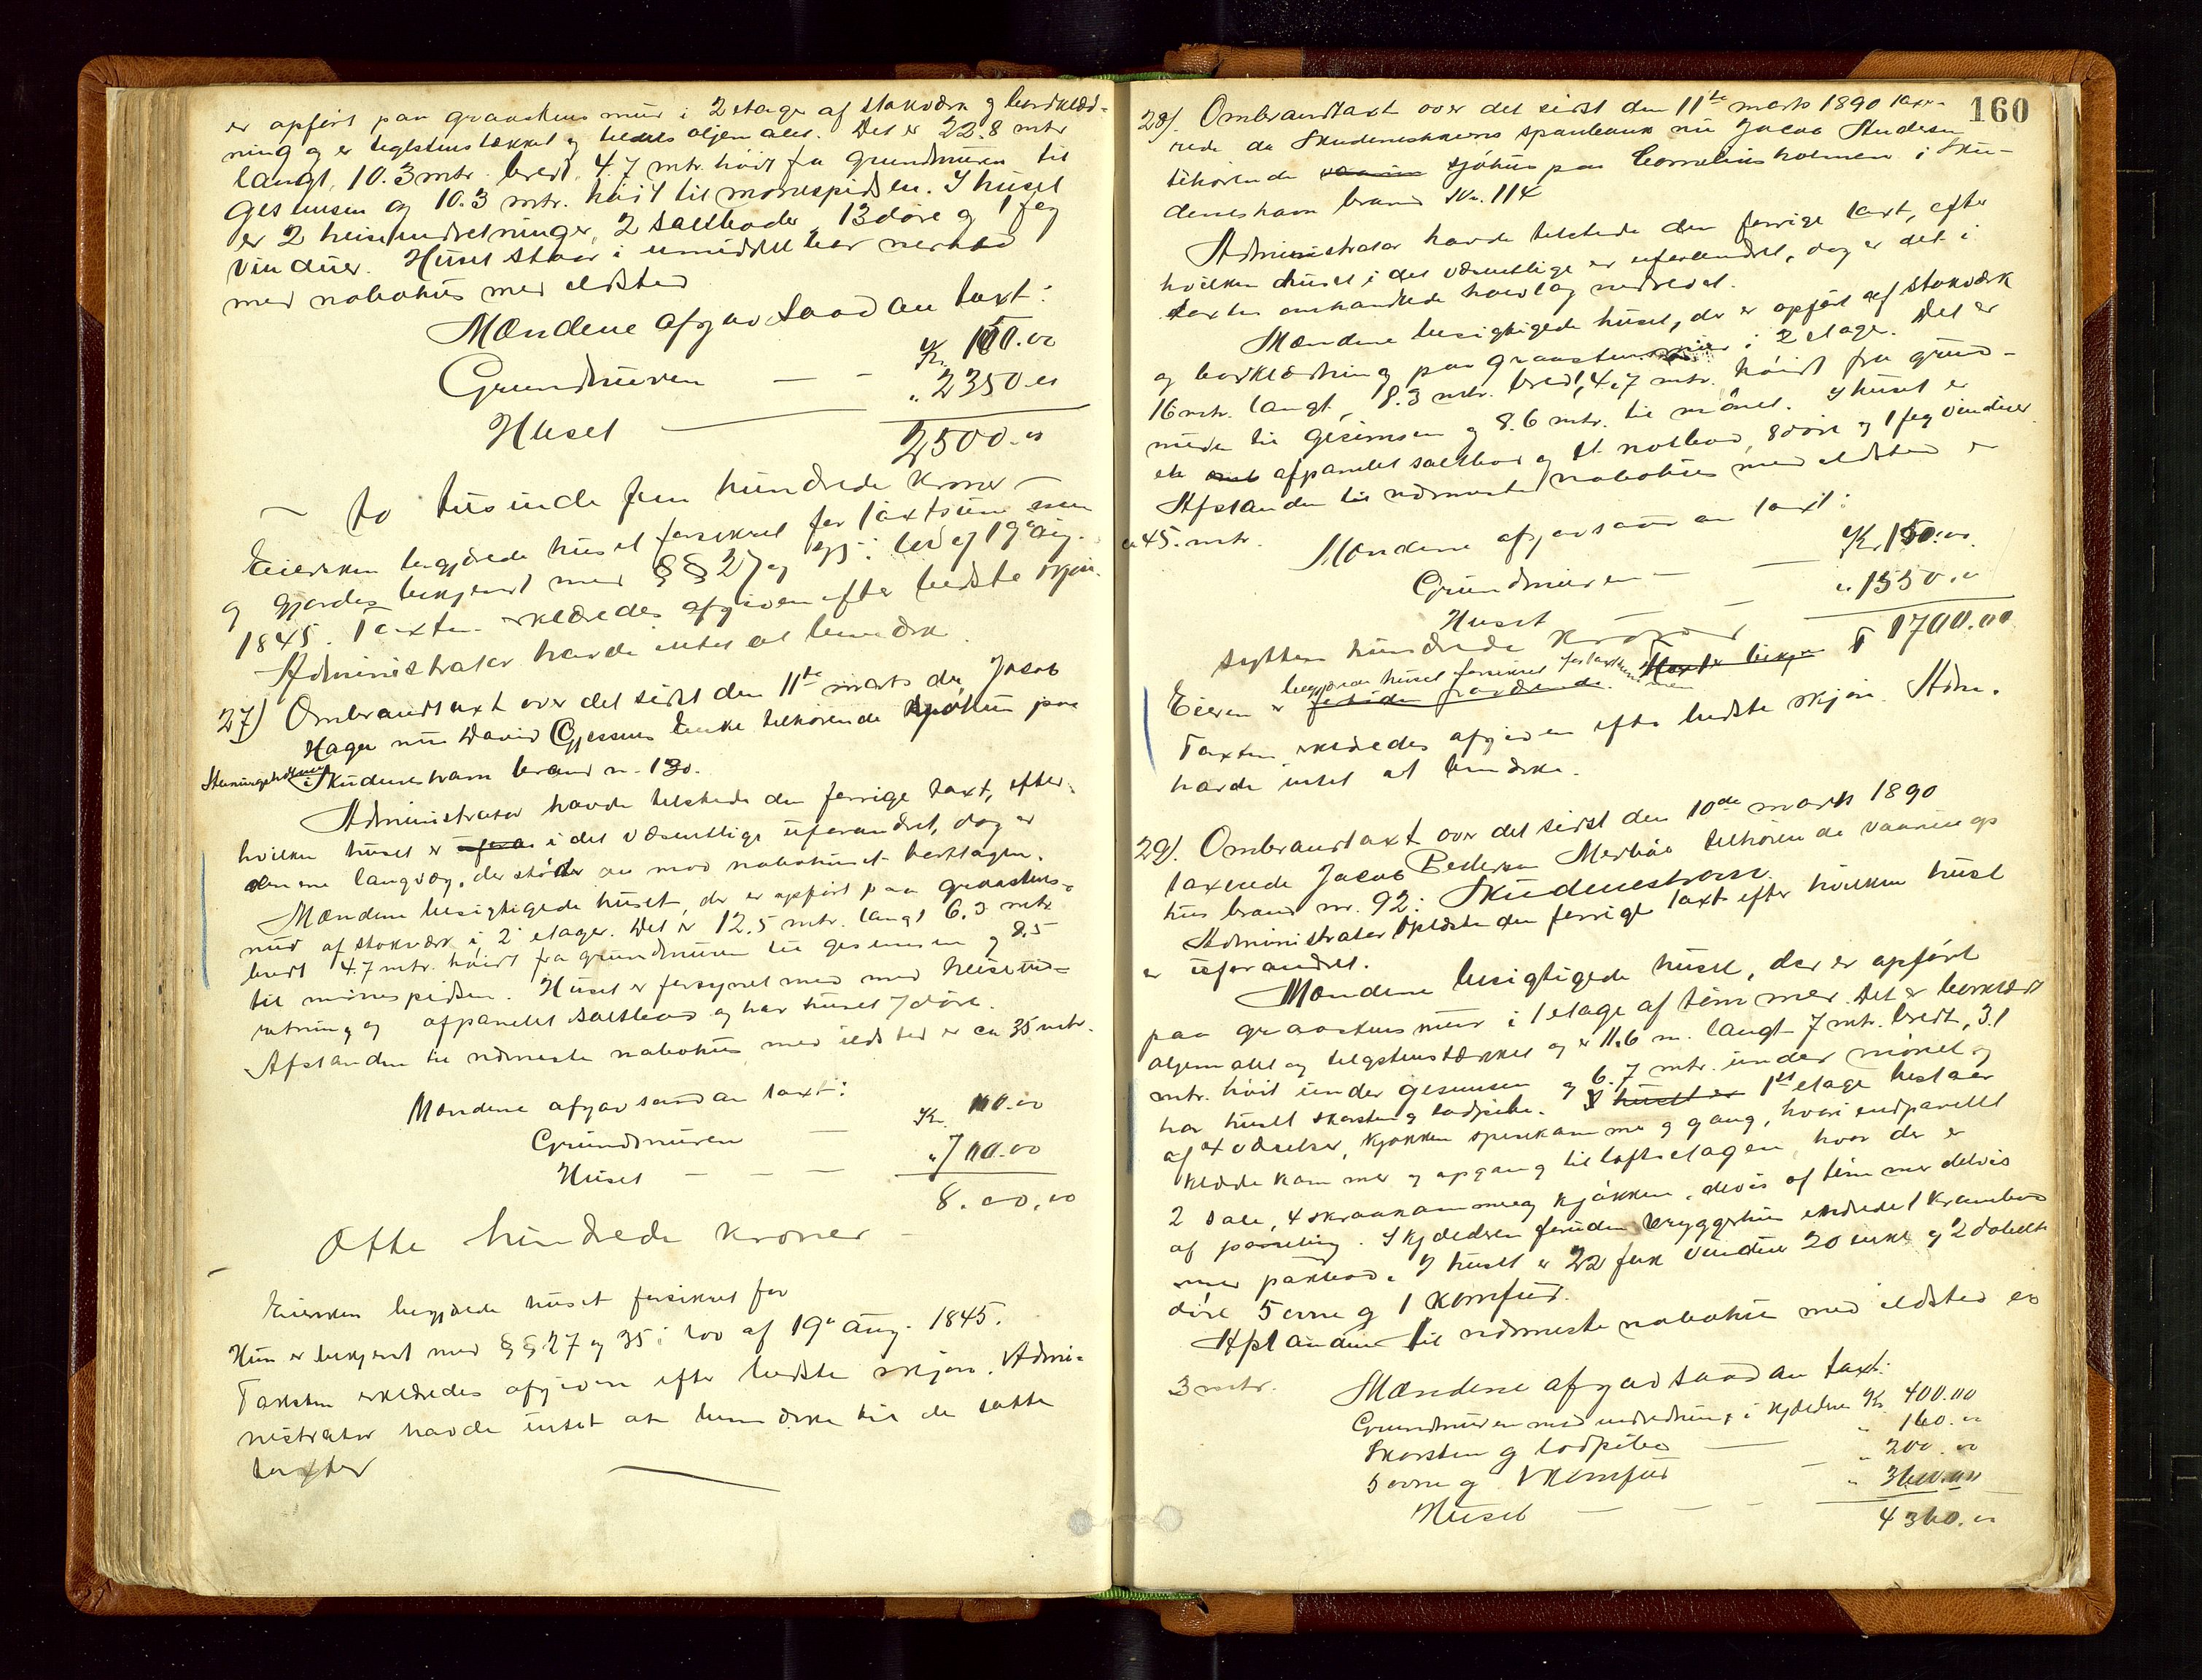 er opført paa graastens mur i 2 etager af stokværk og bordklæd-
ning og er teglstenstækket og deels oljemalet. Det er 22.8 mtr
langt, 10.3 mtr. bredt, 4.7 mtr. høit fra grundmuren til
gesimsen og 10.3 mtr. høit til mønespidsen. I huset
er 2 heiseindretninger, 2 saltboder, 13 døre og 1 feg
vinduer. Huset staar i umiddelbar nærhed
med nabohus med ildsted
Mændene afgav saadan taxt:
Grundmuren — - Kr. 150.00
Huset — „ 2350.00
2500.00
— to tusinde fem hundrede kroner —
Eiersken begjærede huset forsikret for taxtsummen
og gjordes bekjendt med §§ 27 og 35 i lov af 19 aug.
1845. Taxten erklæredes afgiven efter bedste skjøn.
Administrator havde intet at bemærke.
27) Ombrandtaxt over det sidst den 11te marts da Jacob
Hagen nu David Gjessens Enke tilhørende sjøhus paa
Steiningsholmen i Skudeneshavn brand n. 130.
Administrator havde tilstede den forrige taxt, efter
hvilken huset er i det væsentlige uforandret, dog er
den ene langvæg, der støder an mod nabohuset borttagen.
Mændene besigtigede huset, der er opført paa graastens-
mur af stokværk i 2 etager. Det er 12.5 mtr. langt 6.3 mtr
bredt 4.7 mtr. høidt fra grundmuren til gesimsen og 8.5
til mønespidsen. Huset er forsynet med med heiseind-
retning og afpanelet saltbod og har huset 7 døre.
Afstanden til nærmeste nabohus med ildsted er ca 35 mtr.
Mændene afgav saadan taxt:
Grundmuren — Kr. 100.00
Huset — — — „ 700.00
8.00.00
Otte hundrede kroner —
Eiersken begjærede huset forsikret for
Hun er bekjent med §§ 27 og 35 i lov af 19de aug. 1845.
Taksten erklæredes afgiven efter bedste skjøn. Admi-
nistrator havde intet at bemærke til de satte
taxter
160
28). Ombrandtaxt over det sidst den 11te marts 1890 taxe-
rede da Skudeneshavns sparebank nu Jacob Andersen
tilhørende sjøhus paa Corneliusholmen i Sku-
deneshavn brand No. 114
Administrator havde tilstede den forrige taxt, efter
hvilken huset i det væsentlige er uforandret, dog er det i
taxten omhandlede nedrevet.
Mændene besigtigede huset, der er opført af stokværk
og bordklædning paa graastensmur i 2 etager. Det er
16 mtr. langt, 8.3 mtr. bredt, 4.7 mtr. høidt fra grund-
muren til gesimsen og 8.6 mtr. til mønet. I huset er
et afpanelet saltbod og et notbod, 8 døre og 1 feg vinduer
Afstanden til nærmeste nabohus med ildsted er
ca 45. mtr.
Mændene afgav saadan taxt:
Grundmuren — — Kr 150.00
Huset — — „ 1550.00
sytten hundrede kroner 1700.00
Eieren begjærede huset forsikret for taxtsummen
Taxten erklæredes afgiven efter bedste skjøn. Adm.
havde intet at bemærke.
29). Ombrandtaxt over det sidst den 10de marts 1890
taxerede Jacob Pedersen Medhaug tilhørende vaanings
hus brand nr. 92 i Skudeneshavn.
Administrator oplæste den forrige taxt efter hvilken huset
er uforandret.
Mændene besigtigede huset, der er opført
paa graastensmur i 1 etage af tømmer. Det er bordklædt
oljemalet og teglstenstækket og er 11.6 m. langt 7 mtr. bredt, 3.1
mtr. høit under gesimsen og 6.7 mtr. under mønet og
har huset skorsten og lodpibe. 1ste etage bestaar
af 4 værelser, kjøkken spisekammer og gang, hvori indpanelet
klædekammer og opgang til loftsetagen, hvor der er
2 sale, 4 skraakammer og kjøkken, delvis af tømmer delvis
af paneling. I kjælderen foruden bryggerhus indredet krambod
med pakbod. I huset er 22 fuk vinduer 20 enkle og 2 dobelte
døre 5 ovne og 1 komfur.
Afstanden til nærmeste nabohus med ildsted er
3 mtr.
Mændene afgav saadan taxt:
Grundmuren med indredning i kjælderen Kr. 400.00
Skorsten og lodpibe — „ 160.00
5 ovne og 1 komfur — „ 200.00
Huset — — — „ 3600.00
4360.00